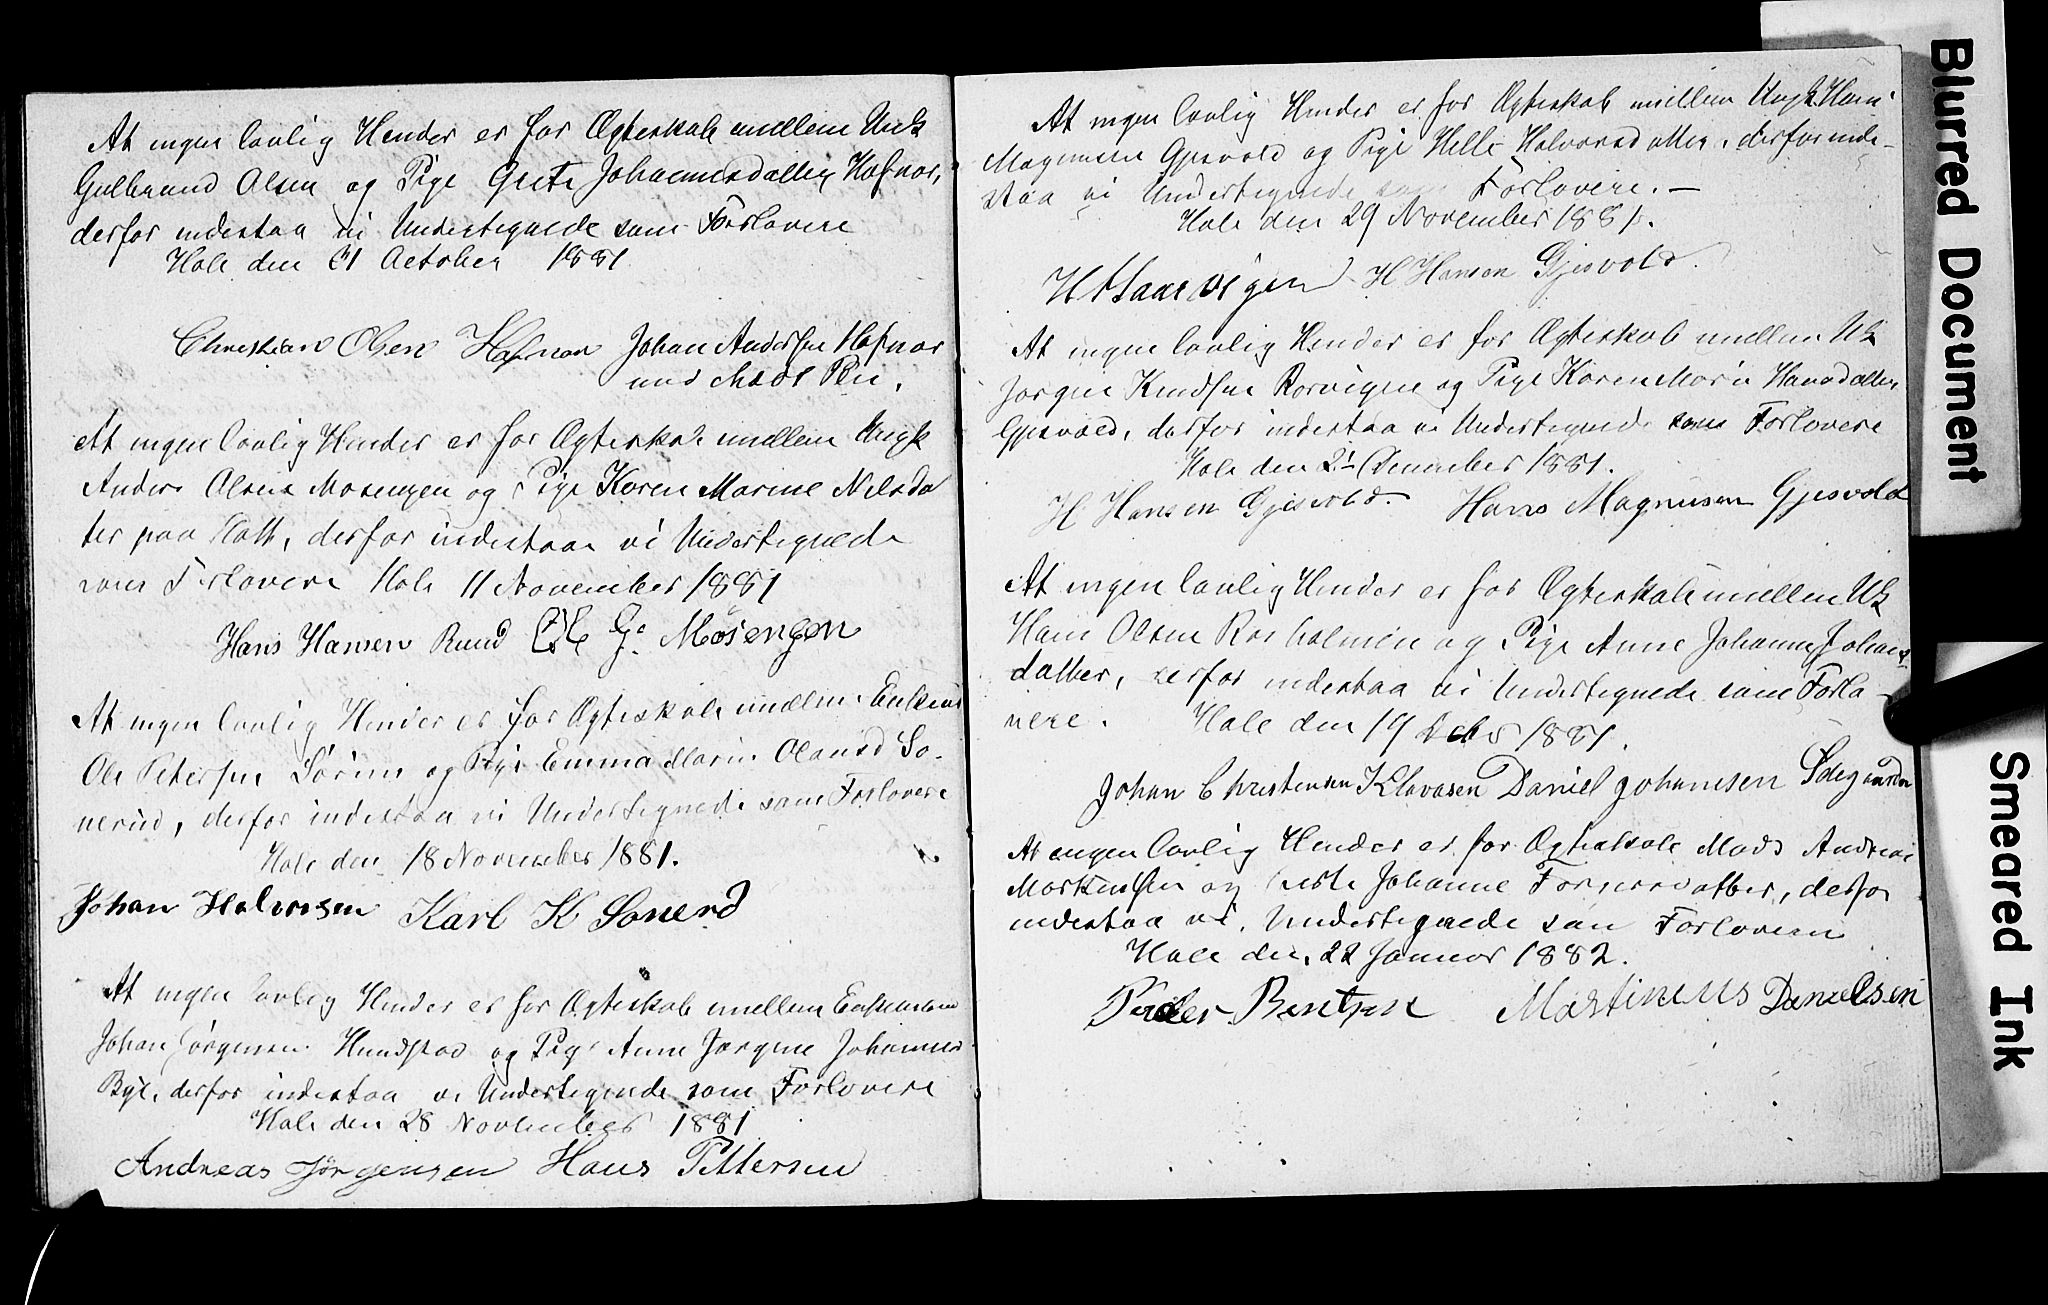 At ingen lovlig Hinder er for Ægteskab mellem Unk
Gulbrand Olsen og Pige Grete Johannesdatter Hafnor,
derfor indestaa vi Undertegnede som Forlovere
Hole den 31 October 1881
Christian Olsen Hafnor Johan Andersen Hafnor
med Pen.
At ingen lovlig Hinder er for Ægteskab mellem Ungk
Anders Olsen Mosengen og Pige Karen Marine Nilsdat
ter paa, derfor indestaa vi Undertegnede
som Forlovere Hole 11 November 1881
Hans Hansen Ruud G. Mosengen
At ingen lovlig Hinder er for Ægteskab mellem Enkem
Ole Petersen Sørum og Pige Emma Marie Olausd So-
nerud, derfor indestaa vi Undertegnede som Forlovere
Hole den 18 November 1881.
Johan Halvorsen Karl K Sonerud
At ingen lovlig Hinder er for Ægteskab mellem Enkemand
Johan Jørgensen Hundstad og Pige Anne Jørgine Johannesd
Bye, derfor indestaa vi Undertegnede som Forlovere
Hole den 28 November 1881
Andreas Jørgensen Hans Pettersen
At ingen lovlig Hinder er for Ægteskab mellem Ungk Hans
Magnusen Gjesvold og Pige Helle Halvorsdatter, derfor inde-
staa vi Undertegnede som Forlovere. —
Hole den 29 November 1881.
H Haarvigen H Hansen Gjesvold.
At ingen lovlig Hinder er for Ægteskab mellem Uk
Jørgen Knudsen Rørvigen og Pige Karen Marie Hansdatter
Gjesvold, derfor indestaa vi Undertegnede som Forlovere
Hole den 21 December 1881.
H Hansen Gjesvold. Hans Magnusen Gjesvold
At ingen lovlig Hinder er for Ægteskab mellem Uk
Hans Olsen Rosholmen og Pige Anne Johanne Johans-
datter, derfor indestaa vi Undertegnede som Forlo-
vere. Hole den 19 Decbr 1881.
Johan Christensen Klavasen Daniel Johannsen Ødegaarden
At ingen lovlig Hinder er for Ægteskab Mads Andreas
Markussen og Johanne datter, derfor
indestaa vi Undertegnede som Forlovere
Hole den 22 Januar 1882.
Peder Bentsen Martinius Danielsen
Blurred Document
Smeared Ink